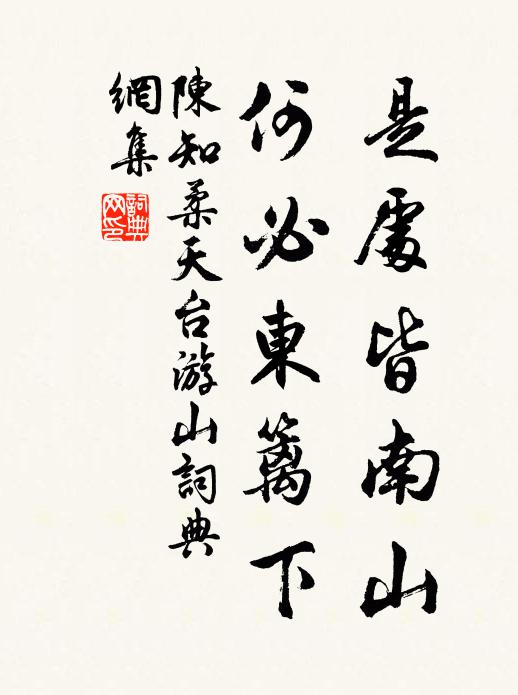 是處皆南山
何必東籬下
陳知柔天台游山詞典
網集
詞典
网印